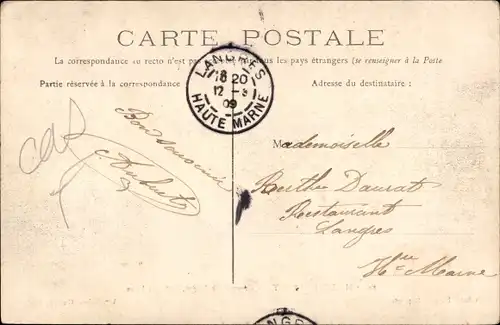 CARTE POSTALE
La correspondance au recto n'est pas tous les pays étrangers (se renseigner à la Poste
Partie réservée à la correspondance
Adresse du destinataire :
LANGRES
18 20
12 - 3
09
HAUTE MARNE
Bon Souvenir
Mademoiselle
Berthe Daurat
Restaurant
Langres
Hte Marne